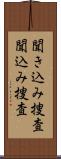 聞き込み捜査
聞込み捜査